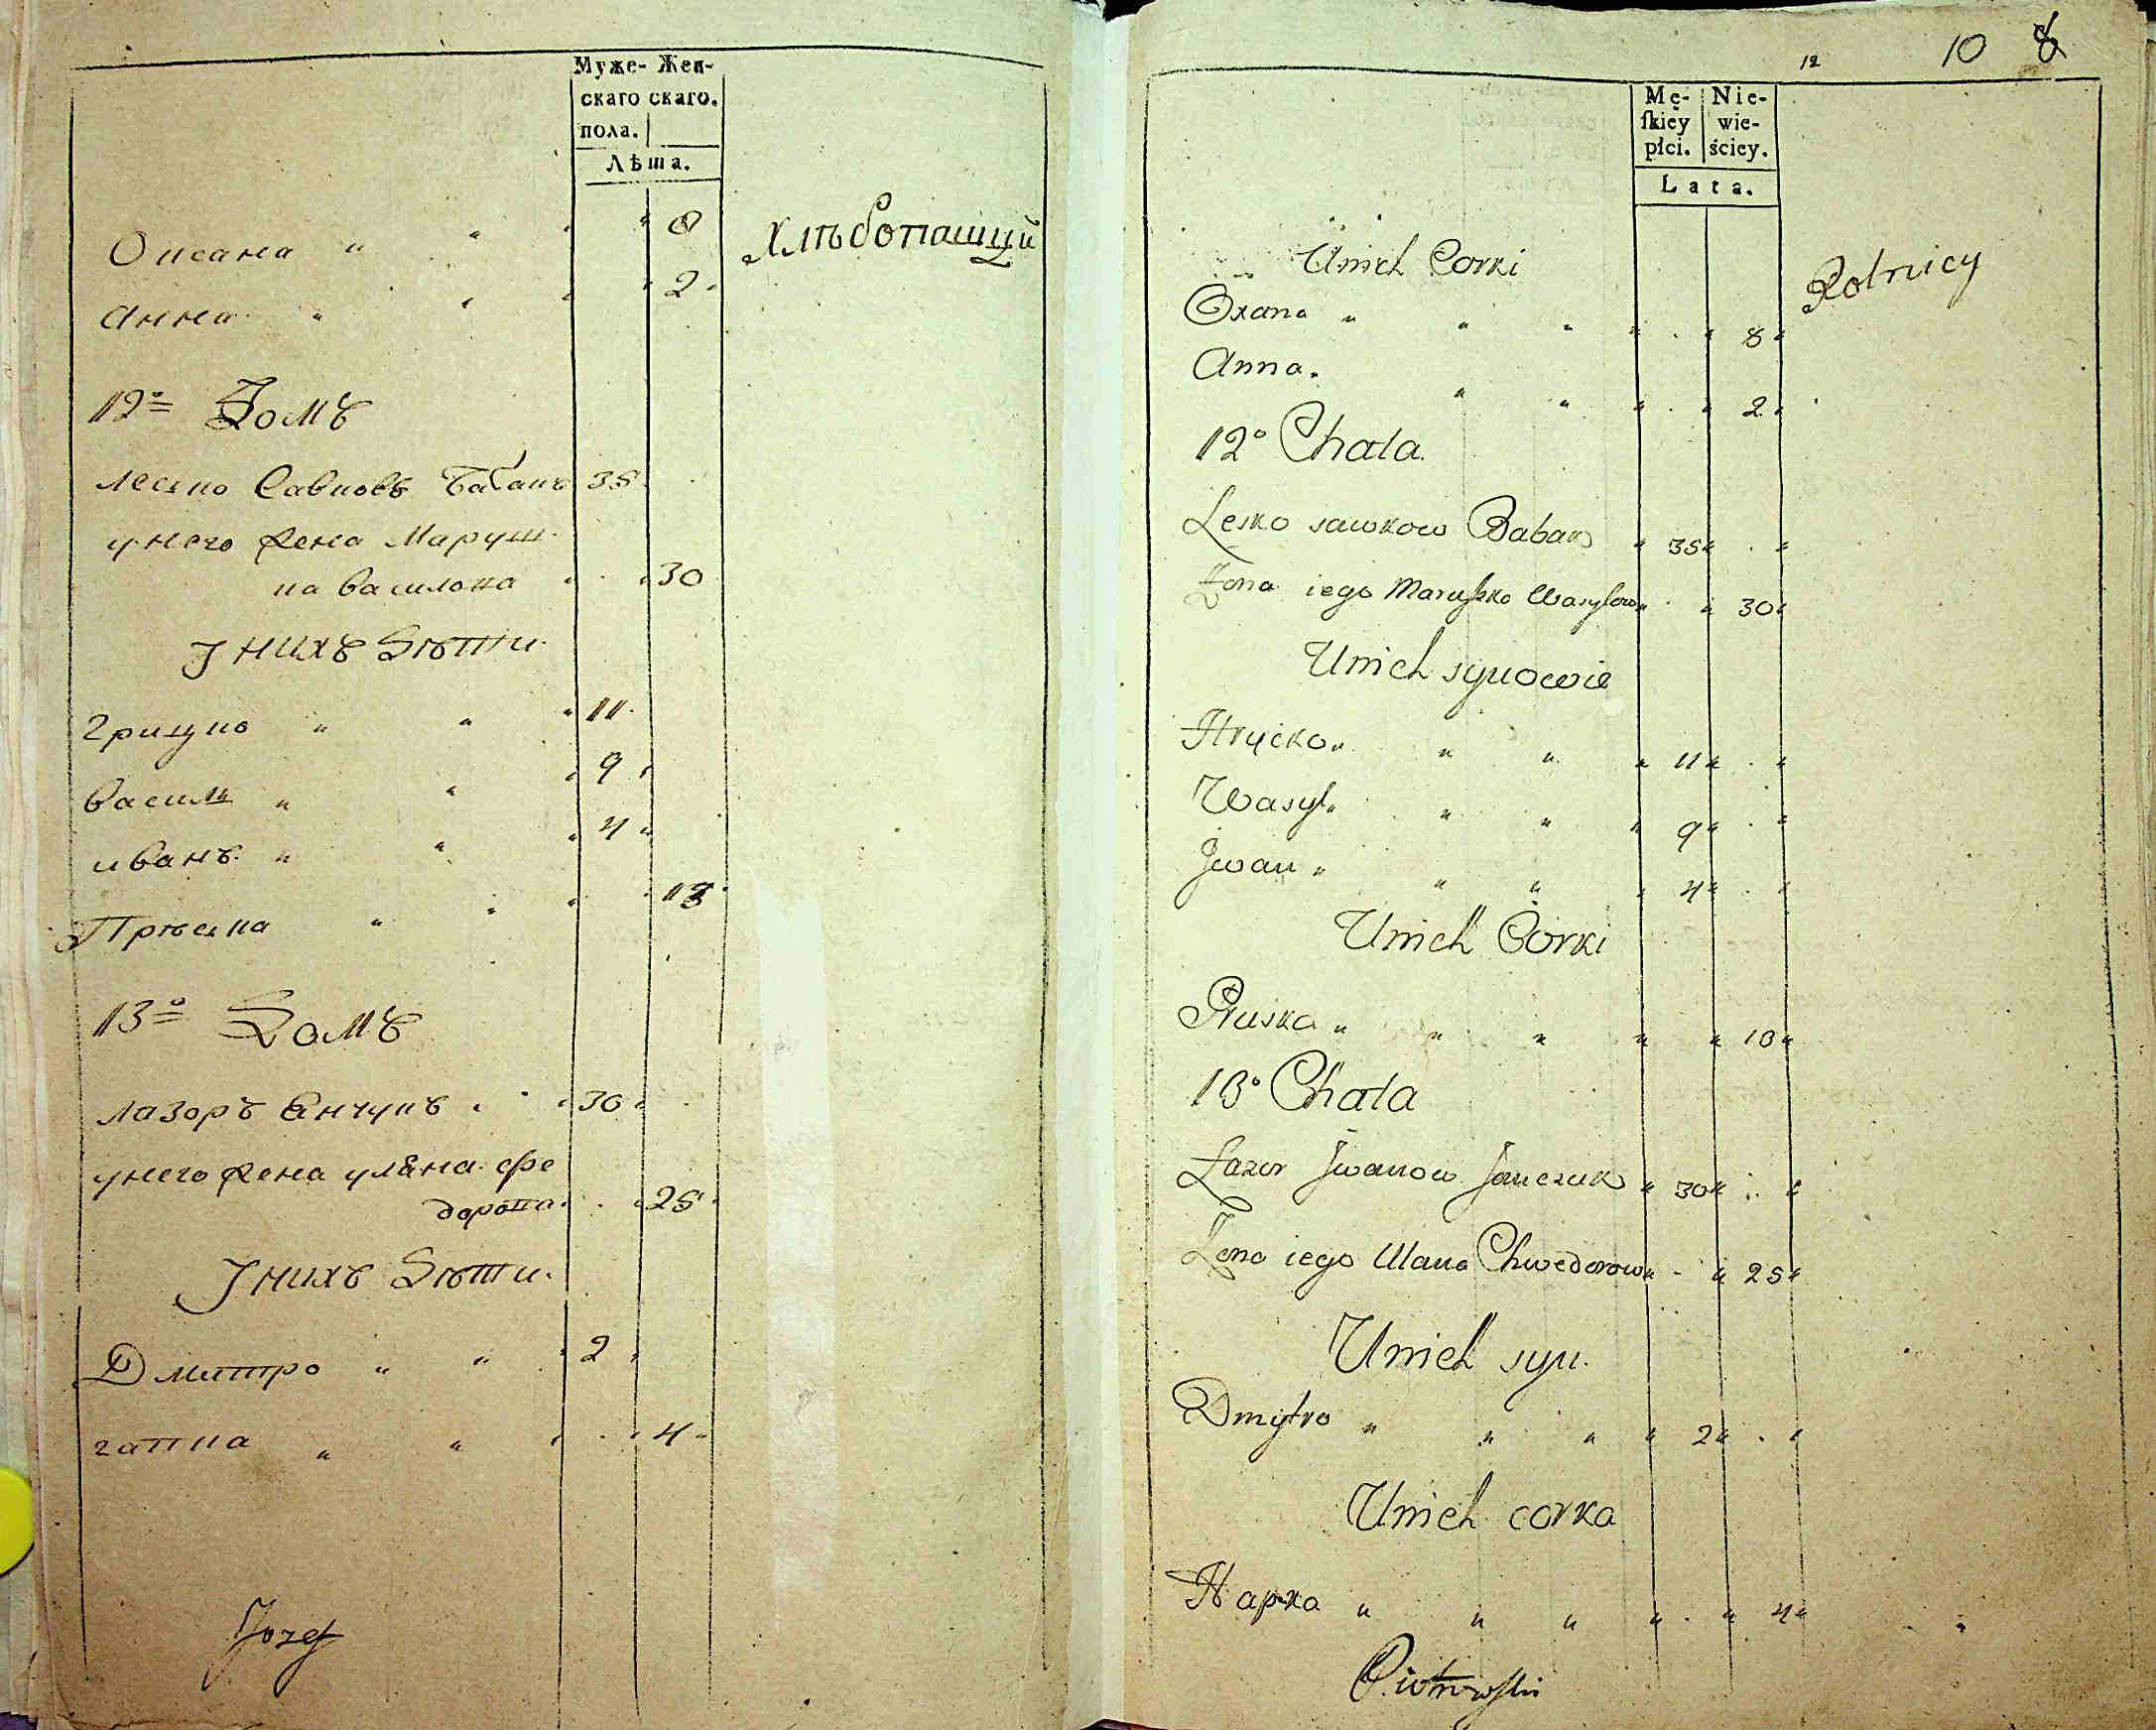 Муже- Жен-
скаго скаго.
пола.
Лѣта.
Хлѣбопашцй
Оксана " " " " 8
Анна " " " " 2
12º Домъ
Леско Савковъ Бабакъ 35
унего жена Маруш
ка Василока " " 30
Унихъ Дѣти
Грицко " " " 11
Василь " " " 9 "
иванъ " " " 4 "
Прѣска " " " " 13
13º Домъ
Лазоръ Янчукъ " " 30 "
унего жена уляна фе
дорова " " 25 "
Унихъ Дѣти.
Дмитро " " " 2 "
гапка " " " " 4 "
Jozef
12 10 8
Mę- Nie-
skiey wie-
płci. ściey.
Lata.
Rolnicy
Unich Corki
Oxana " " " " " 8 "
Anna " " " " 2 "
12º Chata
Lesko sawkow Babak " 35 " "
Zona iego Maruszka Wasylow " " 30 "
Unich synowie
Hrycko " " " " 11 " "
Wasyl " " " " 9 " "
Jwan " " " " 4 " "
Unich Corki
Pruska " " " " " 13 "
13º Chata
Łazor Jwanow Janczuk " 30 " "
Zona iego Ulana Chwedorow " " 25 "
Unich syn.
Dmytro " " " " 2 " "
Unich corka
Hapka " " " " " 4 "
Piotrowski